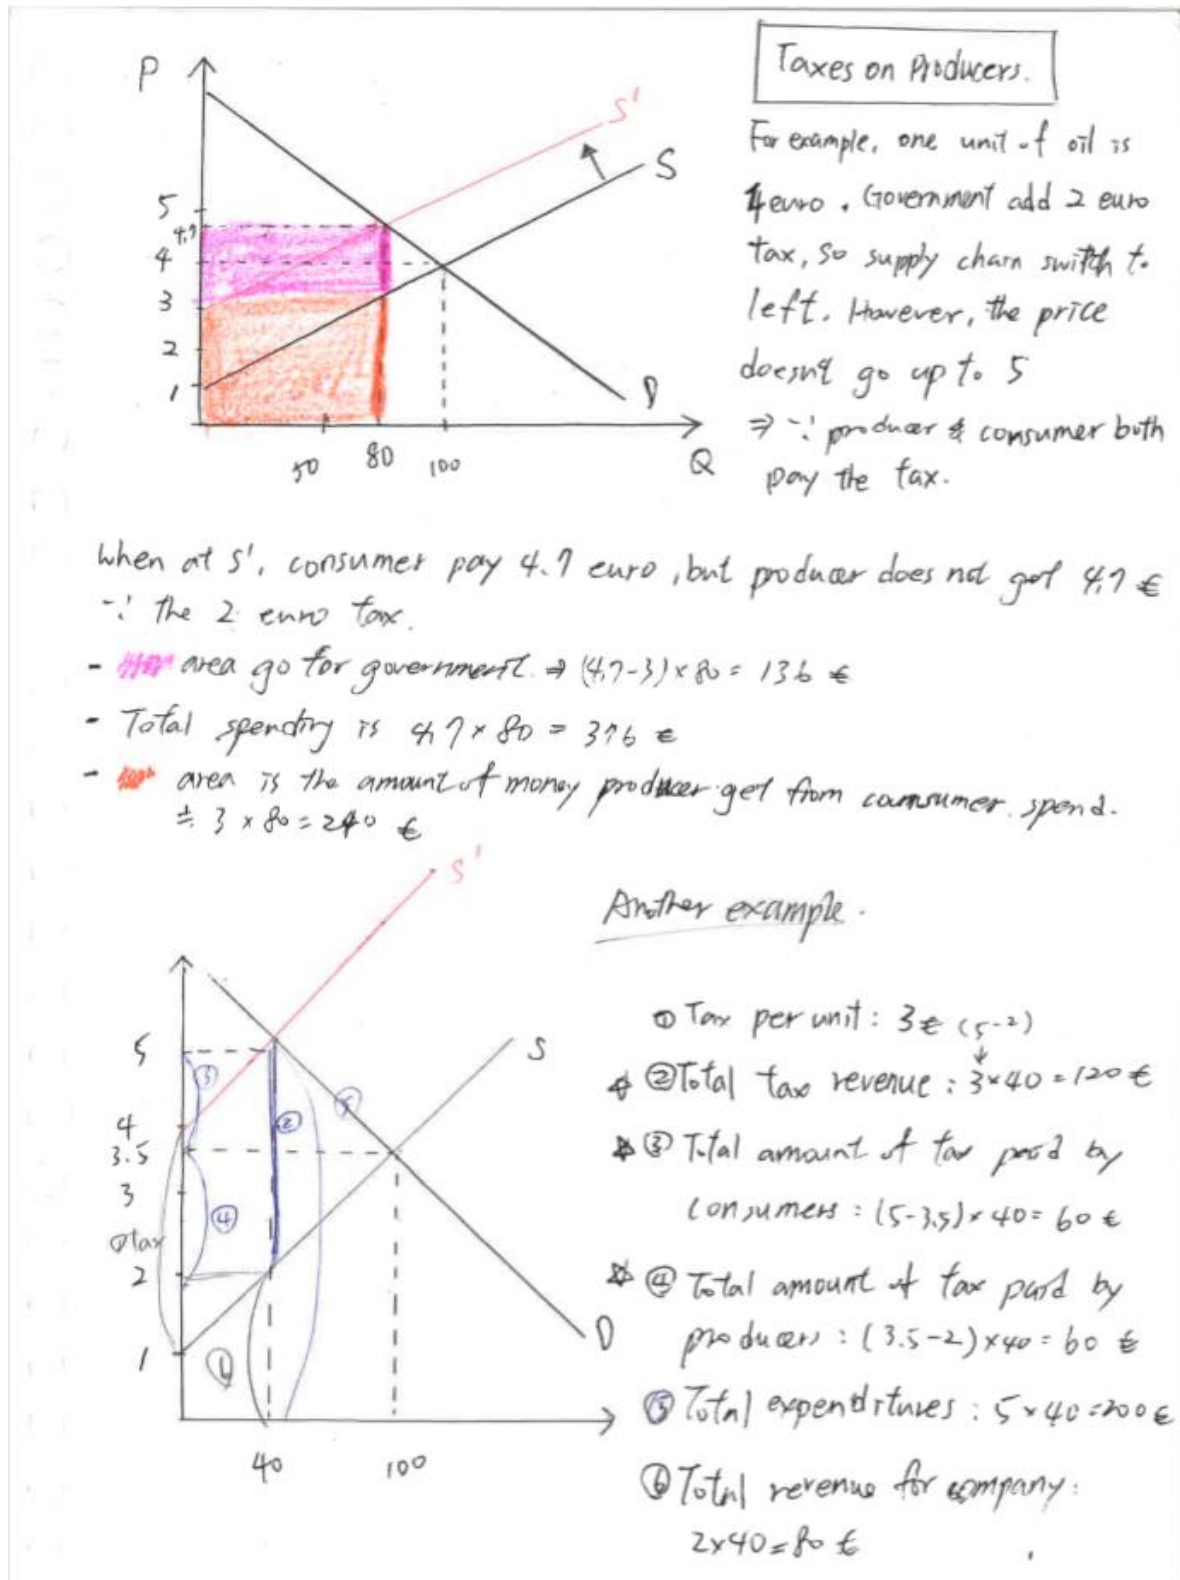 Taxes on Producers.
P
S'
S
5
4.7
4
3
2
1
D
50
80
100
Q
For example, one unit of oil is
4 euro. Government add 2 euro
tax, so supply chain switch to
left. However, the price
doesn't go up to 5
⇒ ∵ producer & consumer both
pay the tax.
when at S', consumer pay 4.7 euro, but producer does not get 4.7 €
∵ the 2 euro tax.
- area go for government. ⇒ (4.7-3) × 80 = 136 €
- Total spending is 4.7 × 80 = 376 €
- area is the amount of money producer get from comsumer. spend.
≒ 3 × 80 = 240 €
S'
Another example.
S
5
③
②
⑤
4
3.5
3
④
①tax
2
1
⑥
D
40
100
① Tax per unit : 3 € (5-2)
☆ ② Total tax revenue : 3×40 = 120 €
☆ ③ Total amount of tax paid by
consumers : (5-3.5) × 40 = 60 €
☆ ④ Total amount of tax paid by
producers : (3.5-2) ×40 = 60 €
⑤ Total expenditures : 5 × 40 = 200 €
⑥ Total revenue for company :
2×40 = 80 €